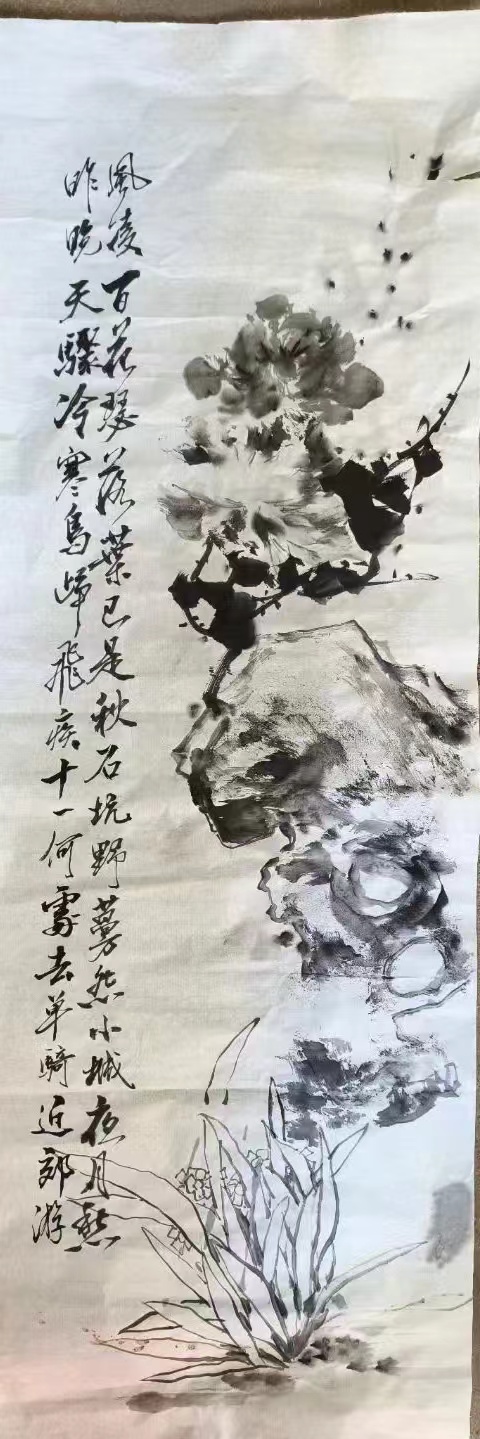 風凌百花瑟落葉已是秋石坑野蔓怨小城夜月愁
昨晚天驟冷寒鳥歸飛疾十一何處去单騎近郊游